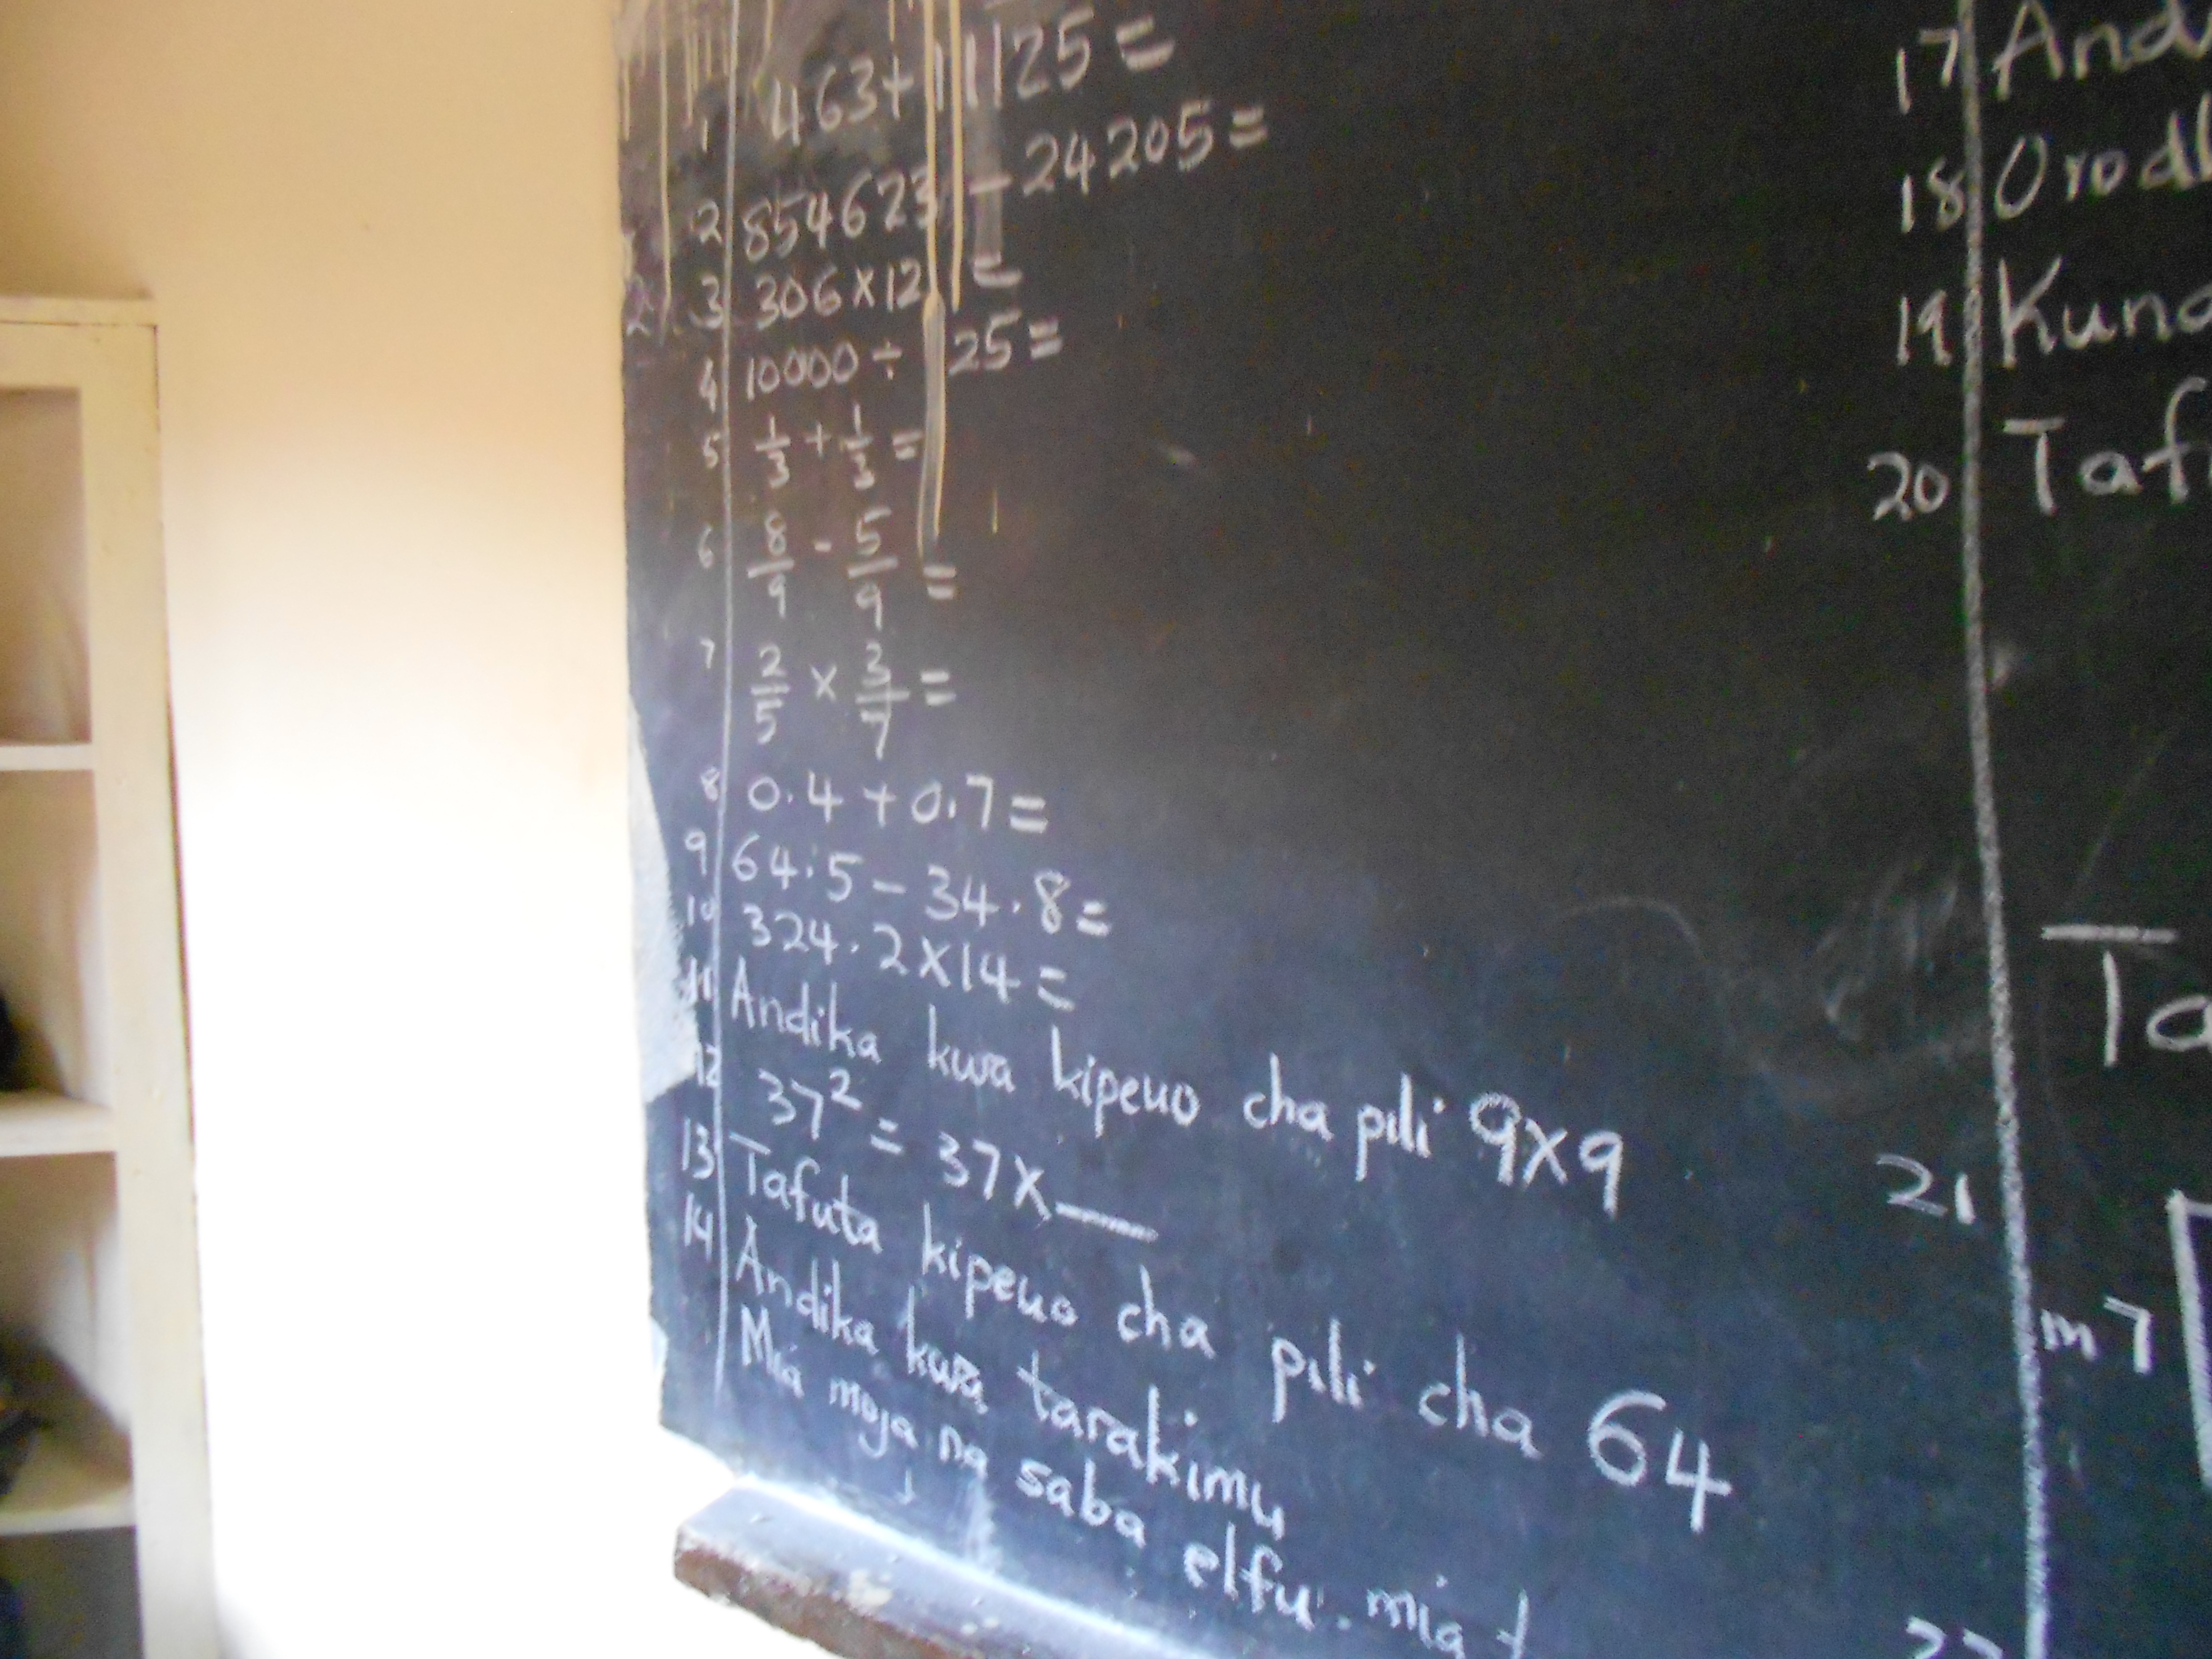 1 463+11125=
2 854623-24205=
3 306×12=
4 10000÷25=
5 1/3+1/3=
6 8/9-5/9=
7 2/5×3/7=
8 0.4+0.7=
9 64.5-34.8=
10 324.2×14=
11 Andika kwa kipeuo cha pili 9×9
12 37²=37×__
13 Tafuta kipeuo cha pili cha 64
14 Andika kwa tarakimu
Mia moja na saba elfu. mia
17 And
18 Orodh
19 Kuna
20 Taf
Ta
21
m 7